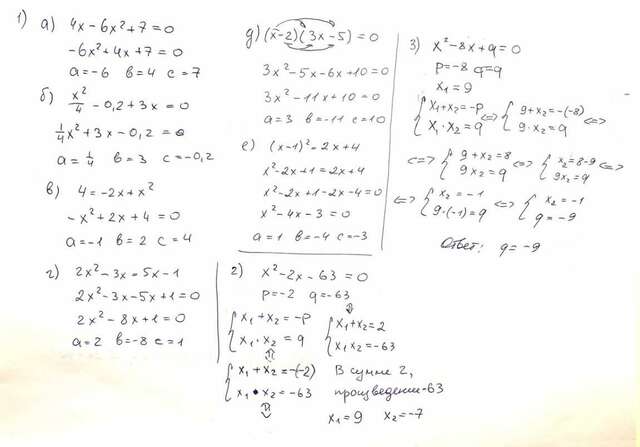 1) а) 4x-6x²+7=0
-6x²+4x+7=0
a=-6 в=4 c=7
б) x²/4 - 0,2+3x=0
1/4x²+3x-0,2=0
a=1/4 в=3 c=-0,2
в) 4=-2x+x²
-x²+2x+4=0
a=-1 в=2 c=4
г) 2x²-3x=5x-1
2x²-3x-5x+1=0
2x²-8x+1=0
a=2 в=-8 c=1
д) (x-2)(3x-5)=0
3x²-5x-6x+10=0
3x²-11x+10=0
a=3 в=-11 c=10
е) (x-1)²=2x+4
x²-2x+1=2x+4
x²-2x+1-2x-4=0
x²-4x-3=0
a=1 в=-4 c=-3
2) x²-2x-63=0
p=-2 q=-63
x₁+x₂=-p
x₁·x₂=q
x₁+x₂=-(-2)
x₁·x₂=-63
x₁+x₂=2
x₁x₂=-63
В сумме 2,
произведении-63
x₁=9 x₂=-7
3) x²-8x+q=0
p=-8 q=q
x₁=9
{x₁+x₂=-p <=> {9+x₂=-(-8) <=>
{x₁·x₂=q {9·x₂=q
<=> {9+x₂=8 <=> {x₂=8-9 <=>
{9x₂=q {9x₂=q
<=> {x₂=-1 <=> {x₂=-1
{9·(-1)=q {q=-9
Ответ: q=-9